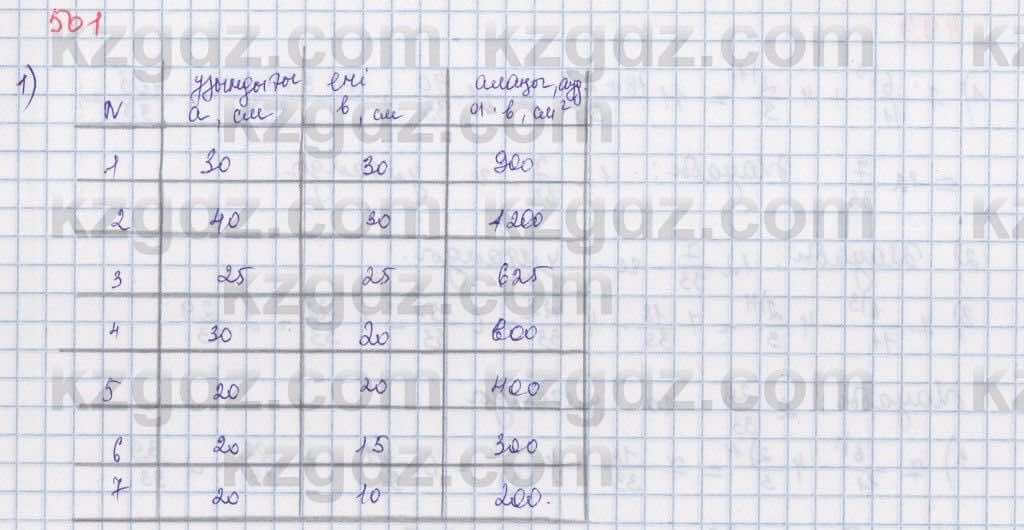 501
1)
N ұзындығы ені
а, см в, см а·в, см²
1 30 30 900
2 40 30 1200
3 25 25 625
4 30 20 600
5 20 20 400
6 20 15 300
7 20 10 200.
kzgdz.com